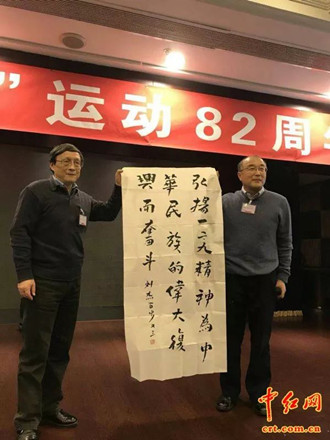 ”运动82周
弘揚一二九精神為中
華民族的偉大復
興而奋斗
中红网
crt.com.cn